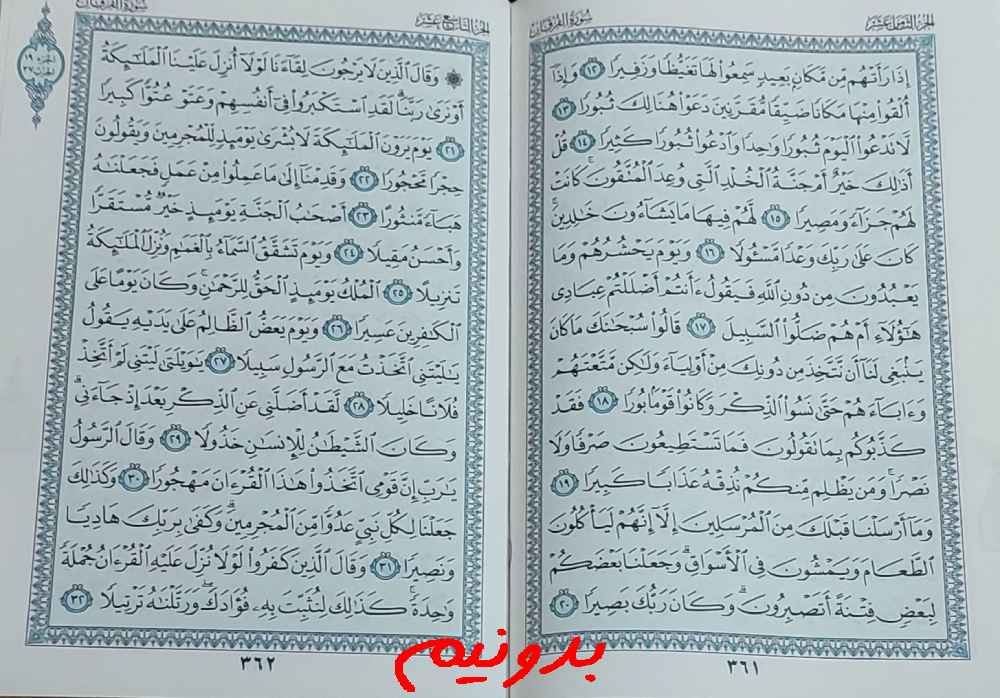 الجزء الثامن عشر
سورة الفرقان
إِذَا رَأَتْهُم مِّن مَّكَانٍ بَعِيدٍ سَمِعُوا۟ لَهَا تَغَيُّظًا وَزَفِيرًا ١٢ وَإِذَآ
أُلْقُوا۟ مِنْهَا مَكَانًا ضَيِّقًا مُّقَرَّنِينَ دَعَوْا۟ هُنَالِكَ ثُبُورًا ١٣
لَّا تَدْعُوا۟ ٱلْيَوْمَ ثُبُورًا وَٰحِدًا وَٱدْعُوا۟ ثُبُورًا كَثِيرًا ١٤ قُلْ
أَذَٰلِكَ خَيْرٌ أَمْ جَنَّةُ ٱلْخُلْدِ ٱلَّتِى وُعِدَ ٱلْمُتَّقُونَ ۚ كَانَتْ
لَهُمْ جَزَآءً وَمَصِيرًا ١٥ لَّهُمْ فِيهَا مَا يَشَآءُونَ خَٰلِدِينَ ۚ
كَانَ عَلَىٰ رَبِّكَ وَعْدًا مَّسْـُٔولًا ١٦ وَيَوْمَ يَحْشُرُهُمْ وَمَا
يَعْبُدُونَ مِن دُونِ ٱللَّهِ فَيَقُولُ ءَأَنتُمْ أَضْلَلْتُمْ عِبَادِى
هَٰٓؤُلَآءِ أَمْ هُمْ ضَلُّوا۟ ٱلسَّبِيلَ ١٧ قَالُوا۟ سُبْحَٰنَكَ مَا كَانَ
يَنۢبَغِى لَنَآ أَن نَّتَّخِذَ مِن دُونِكَ مِنْ أَوْلِيَآءَ وَلَٰكِن مَّتَّعْتَهُمْ
وَءَابَآءَهُمْ حَتَّىٰ نَسُوا۟ ٱلذِّكْرَ وَكَانُوا۟ قَوْمًۢا بُورًا ١٨ فَقَدْ
كَذَّبُوكُم بِمَا تَقُولُونَ فَمَا تَسْتَطِيعُونَ صَرْفًا وَلَا
نَصْرًا ۚ وَمَن يَظْلِم مِّنكُمْ نُذِقْهُ عَذَابًا كَبِيرًا ١٩
وَمَآ أَرْسَلْنَا قَبْلَكَ مِنَ ٱلْمُرْسَلِينَ إِلَّآ إِنَّهُمْ لَيَأْكُلُونَ
ٱلطَّعَامَ وَيَمْشُونَ فِى ٱلْأَسْوَاقِ ۗ وَجَعَلْنَا بَعْضَكُمْ
لِبَعْضٍ فِتْنَةً أَتَصْبِرُونَ ۗ وَكَانَ رَبُّكَ بَصِيرًا ٢٠
٣٦١
الجزء التاسع عشر
سورة الفرقان
الجزء ١٩
وَقَالَ ٱلَّذِينَ لَا يَرْجُونَ لِقَآءَنَا لَوْلَآ أُنزِلَ عَلَيْنَا ٱلْمَلَٰٓئِكَةُ
أَوْ نَرَىٰ رَبَّنَا ۗ لَقَدِ ٱسْتَكْبَرُوا۟ فِىٓ أَنفُسِهِمْ وَعَتَوْ عُتُوًّا كَبِيرًا
٢١ يَوْمَ يَرَوْنَ ٱلْمَلَٰٓئِكَةَ لَا بُشْرَىٰ يَوْمَئِذٍ لِّلْمُجْرِمِينَ وَيَقُولُونَ
حِجْرًا مَّحْجُورًا ٢٢ وَقَدِمْنَآ إِلَىٰ مَا عَمِلُوا۟ مِنْ عَمَلٍ فَجَعَلْنَٰهُ
هَبَآءً مَّنثُورًا ٢٣ أَصْحَٰبُ ٱلْجَنَّةِ يَوْمَئِذٍ خَيْرٌ مُّسْتَقَرًّا
وَأَحْسَنُ مَقِيلًا ٢٤ وَيَوْمَ تَشَقَّقُ ٱلسَّمَآءُ بِٱلْغَمَٰمِ وَنُزِّلَ ٱلْمَلَٰٓئِكَةُ
تَنزِيلًا ٢٥ ٱلْمُلْكُ يَوْمَئِذٍ ٱلْحَقُّ لِلرَّحْمَٰنِ ۚ وَكَانَ يَوْمًا عَلَى
ٱلْكَٰفِرِينَ عَسِيرًا ٢٦ وَيَوْمَ يَعَضُّ ٱلظَّالِمُ عَلَىٰ يَدَيْهِ يَقُولُ
يَٰلَيْتَنِى ٱتَّخَذْتُ مَعَ ٱلرَّسُولِ سَبِيلًا ٢٧ يَٰوَيْلَتَىٰ لَيْتَنِى لَمْ أَتَّخِذْ
فُلَانًا خَلِيلًا ٢٨ لَّقَدْ أَضَلَّنِى عَنِ ٱلذِّكْرِ بَعْدَ إِذْ جَآءَنِى ۗ
وَكَانَ ٱلشَّيْطَٰنُ لِلْإِنسَٰنِ خَذُولًا ٢٩ وَقَالَ ٱلرَّسُولُ
يَٰرَبِّ إِنَّ قَوْمِى ٱتَّخَذُوا۟ هَٰذَا ٱلْقُرْءَانَ مَهْجُورًا ٣٠ وَكَذَٰلِكَ
جَعَلْنَا لِكُلِّ نَبِىٍّ عَدُوًّا مِّنَ ٱلْمُجْرِمِينَ ۗ وَكَفَىٰ بِرَبِّكَ هَادِيًا
وَنَصِيرًا ٣١ وَقَالَ ٱلَّذِينَ كَفَرُوا۟ لَوْلَا نُزِّلَ عَلَيْهِ ٱلْقُرْءَانُ جُمْلَةً
وَٰحِدَةً ۚ كَذَٰلِكَ لِنُثَبِّتَ بِهِۦ فُؤَادَكَ ۖ وَرَتَّلْنَٰهُ تَرْتِيلًا ٣٢
٣٦٢
بدونیم